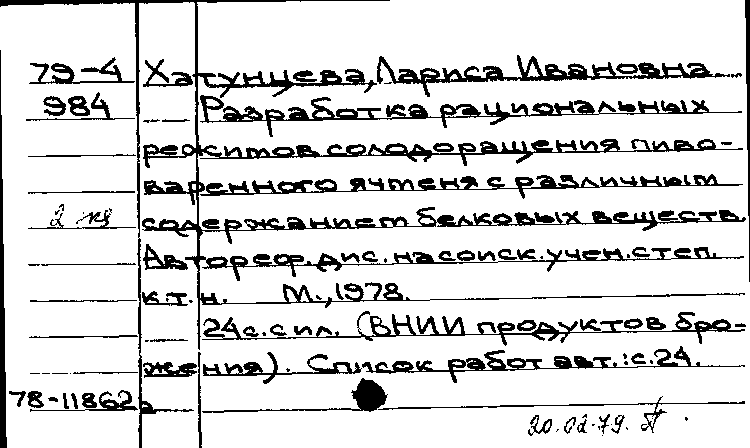 79-4 Хатунцева, Лариса Ивановна
984 Разработка рациональных
режимов солодоращения пиво-
варенного ячменя с различным
2 кз содержанием белковых веществ.
Автореф. дис. на соиск. учен. степ.
к.т.н. М., 1978.
24 с. с ил. (ВНИИ продуктов бро-
жения). Список работ авт.: с. 24.
78-11862
20.02.79.